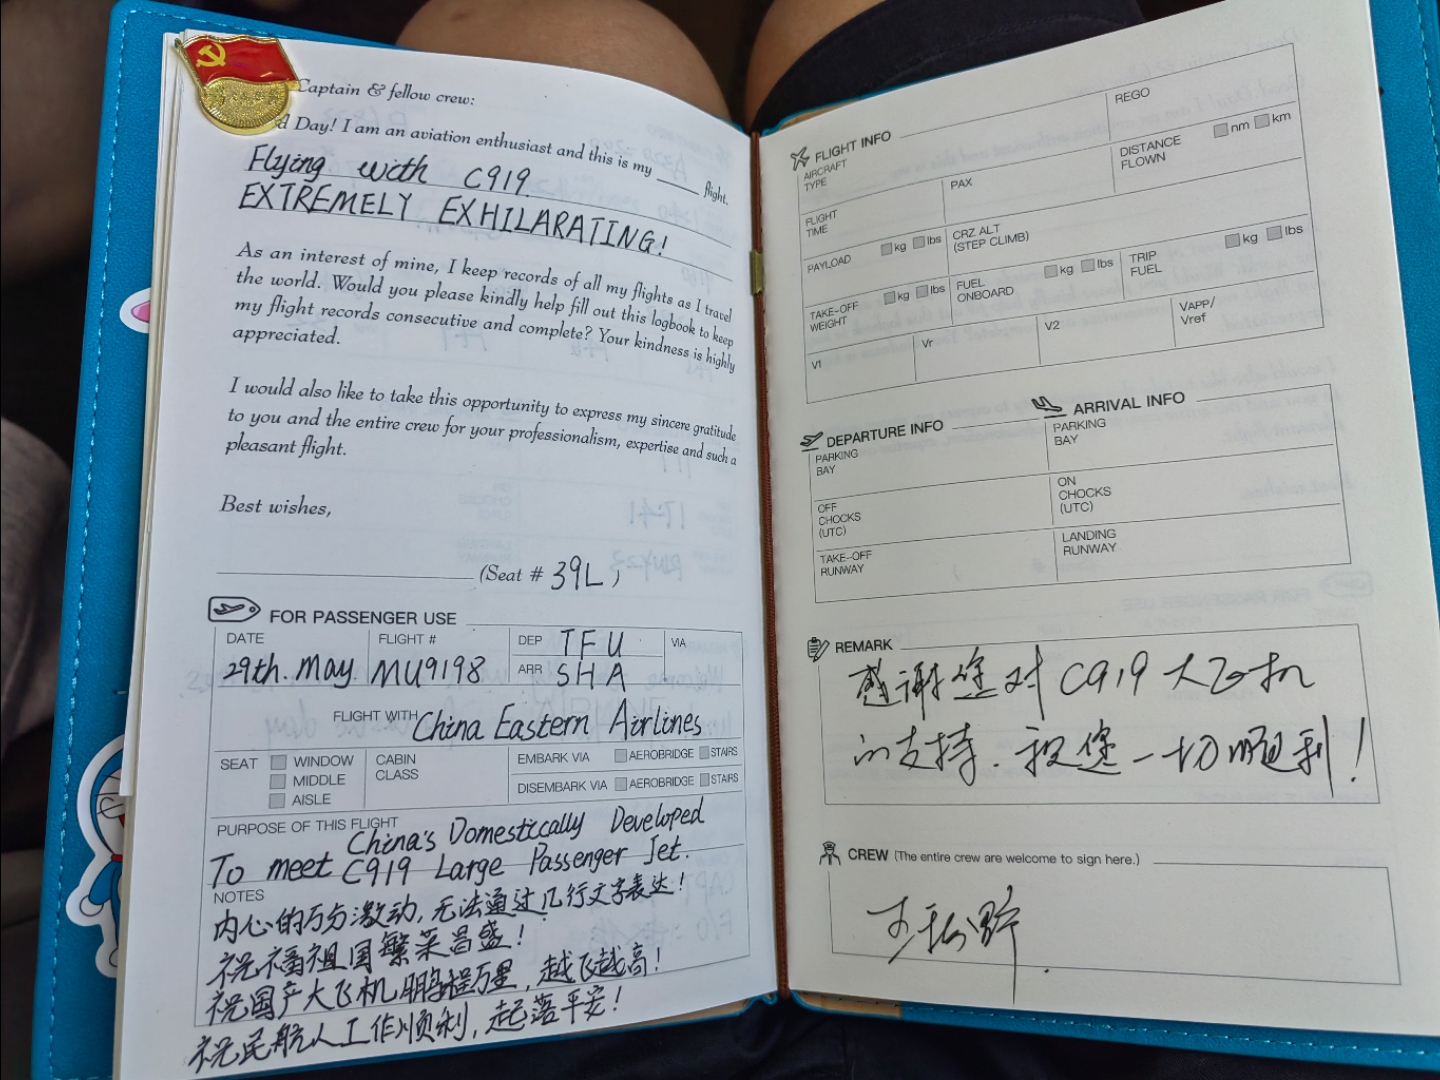 Captain & fellow crew:
d Day! I am an aviation enthusiast and this is my ____ flight.
Flying with C919
EXTREMELY EXHILARATING!
As an interest of mine, I keep records of all my flights as I travel
the world. Would you please kindly help fill out this logbook to keep
my flight records consecutive and complete? Your kindness is highly
appreciated.
I would also like to take this opportunity to express my sincere gratitude
to you and the entire crew for your professionalism, expertise and such a
pleasant flight.
Best wishes,
(Seat # 39L)
FOR PASSENGER USE
DATE FLIGHT # DEP TFU VIA
29th. May MU9198 ARR SHA
FLIGHT WITH China Eastern Airlines
SEAT WINDOW MIDDLE AISLE
CABIN CLASS
EMBARK VIA AEROBRIDGE STAIRS
DISEMBARK VIA AEROBRIDGE STAIRS
PURPOSE OF THIS FLIGHT
China's Domestically Developed
To meet C919 Large Passenger Jet.
NOTES
内心的万分激动,无法通过几行文字表达!
祝福祖国繁荣昌盛!
祝国产大飞机鹏程万里,越飞越高!
祝民航人工作顺利,起落平安!
FLIGHT INFO
AIRCRAFT TYPE
REGO
FLIGHT TIME
PAX
DISTANCE FLOWN nm km
PAYLOAD kg lbs
CRZ ALT (STEP CLIMB)
TAKE-OFF WEIGHT kg lbs
FUEL ONBOARD kg lbs
TRIP FUEL kg lbs
V1
Vr
V2
VAPP/ Vref
DEPARTURE INFO
ARRIVAL INFO
PARKING BAY
PARKING BAY
OFF CHOCKS (UTC)
ON CHOCKS (UTC)
TAKE-OFF RUNWAY
LANDING RUNWAY
REMARK
感谢您对C919大飞机
的支持.祝您一切顺利!
CREW (The entire crew are welcome to sign here.)